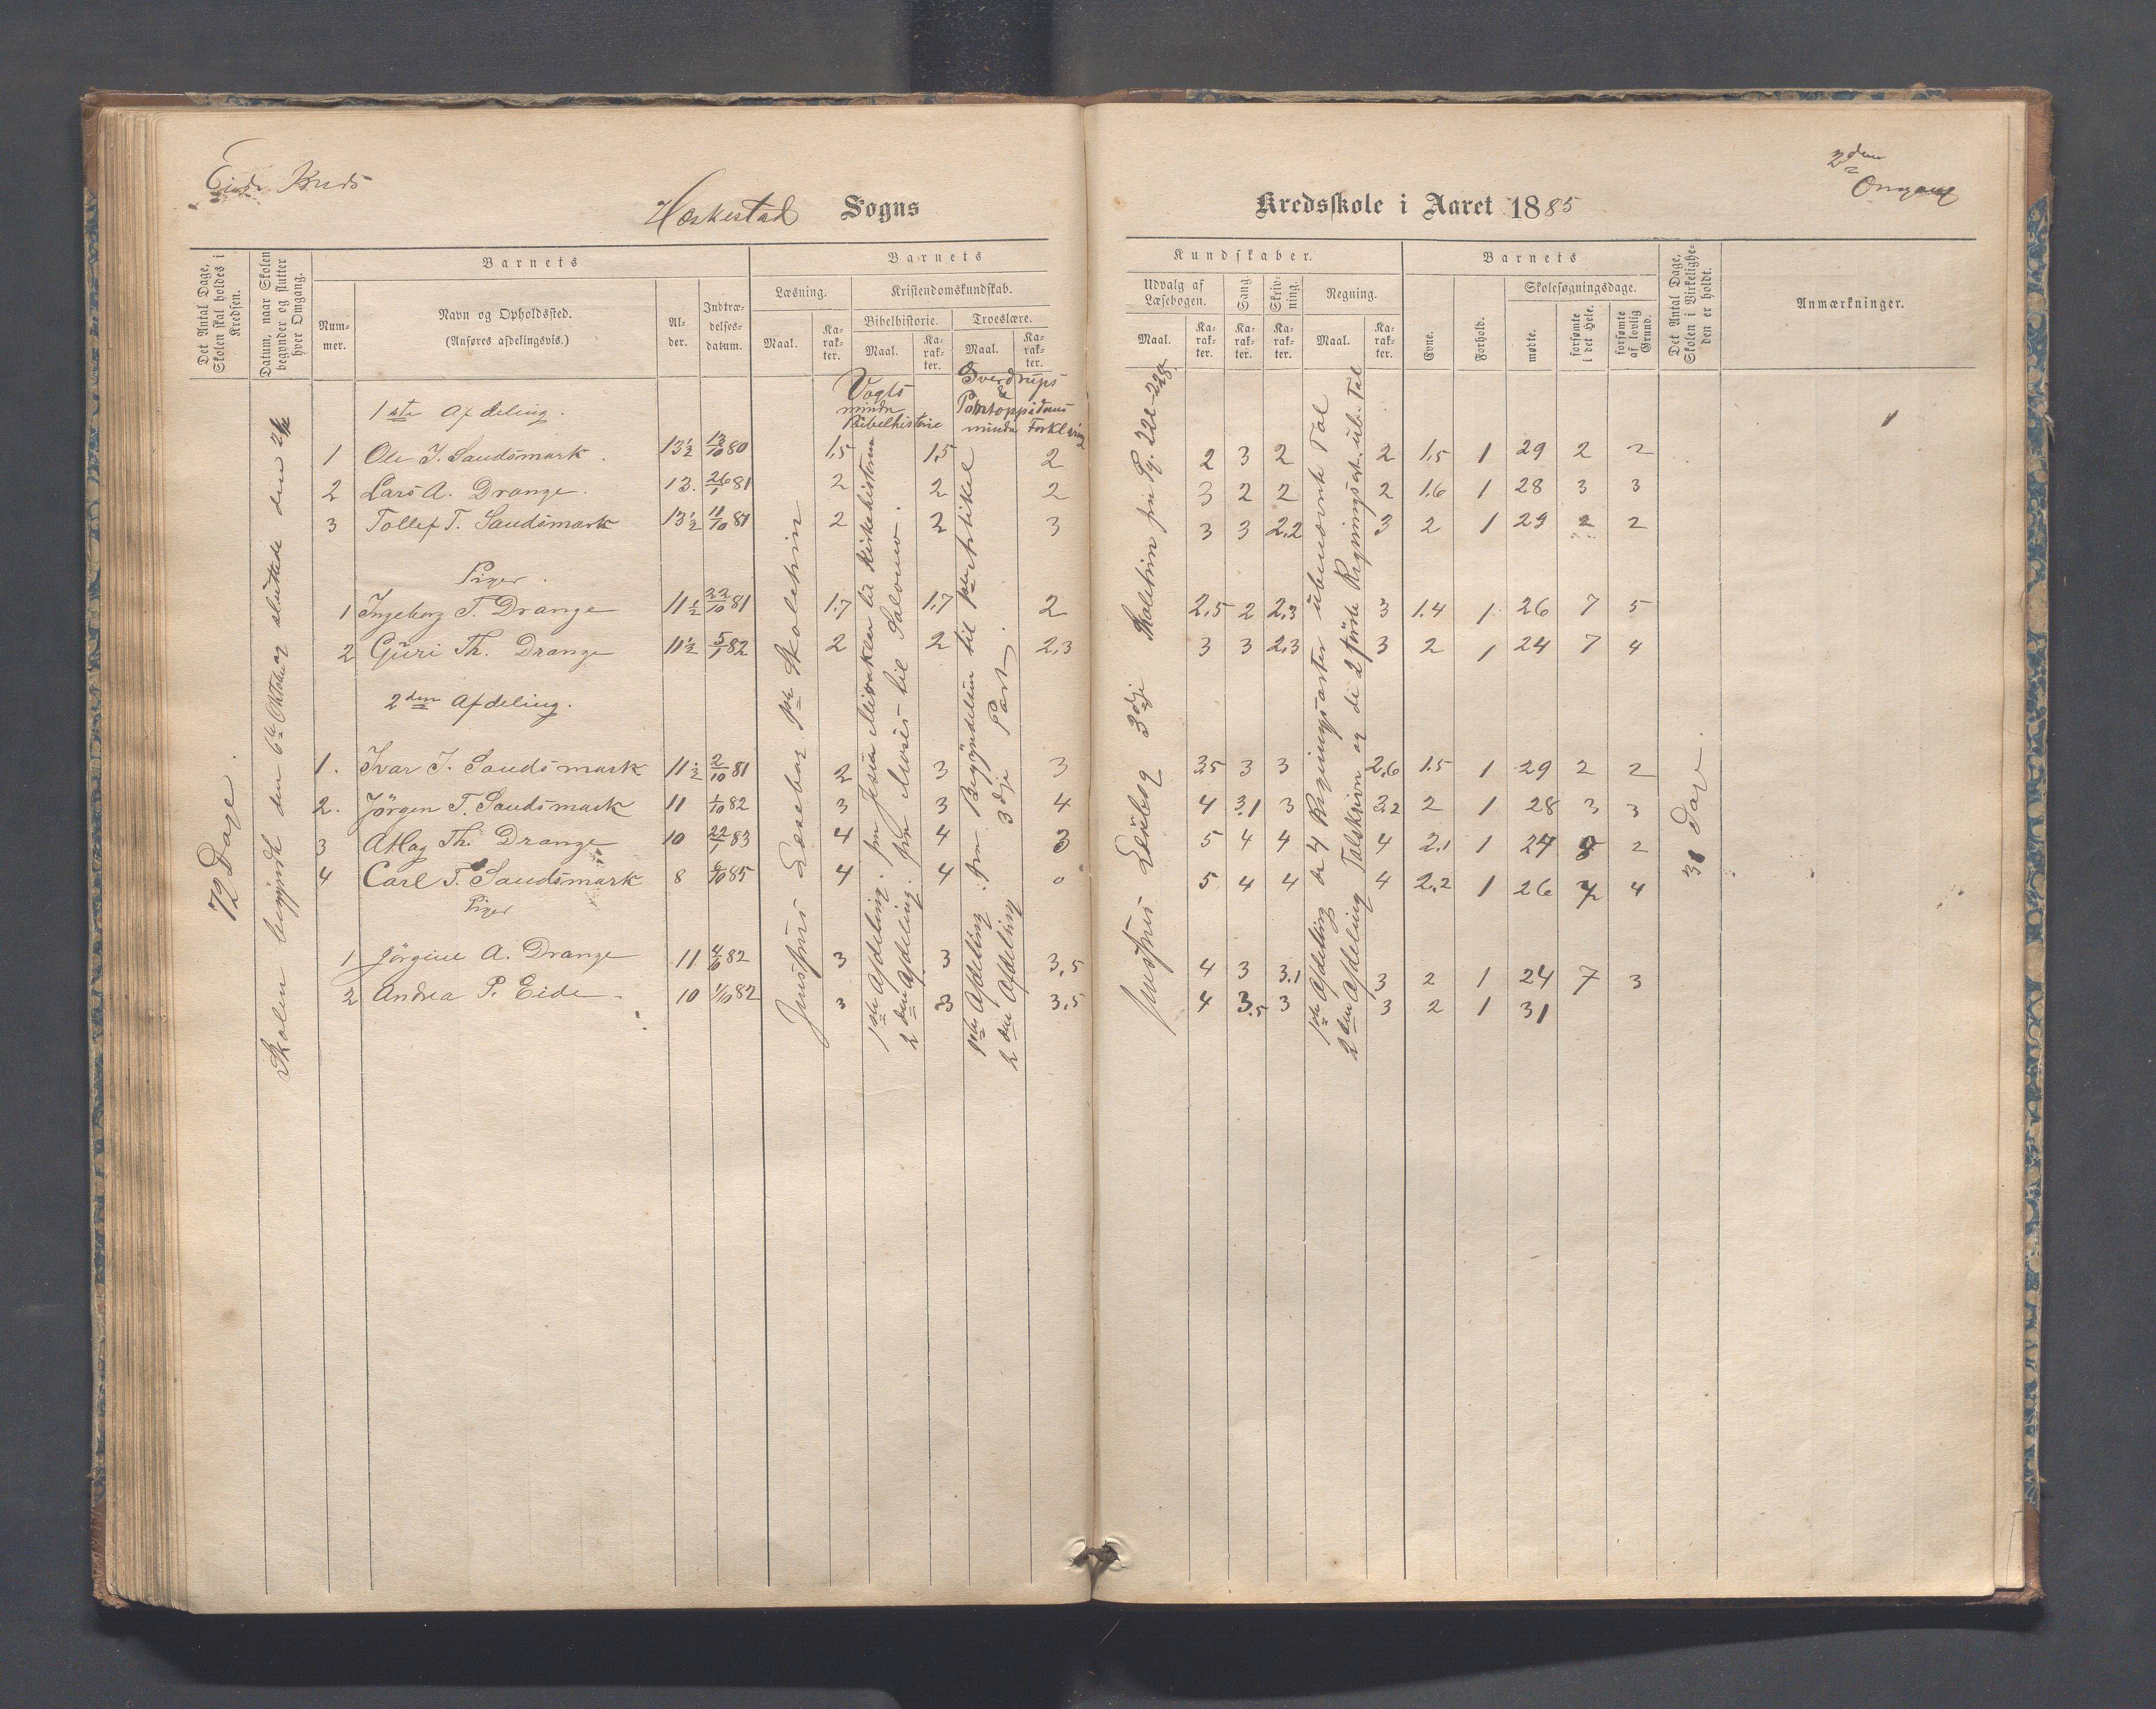 Eide Kreds
2den Omgang
Heskestad Sogns Kredsskole i Aaret 1885
Det Antal Dage, Skolen skal holdes i Kredsen.
Datum, naar Skolen begynder og slutter hver Omgang.
Barnets
Nummer.
Navn og Opholdssted.
(Anføres afdelingsvis.)
Alder.
Indtrædelsesdatum.
Barnets
Læsning.
Maal.
Karakter.
Kristendomskundskab.
Bibelhistorie.
Maal.
Karakter.
Troeslære.
Maal.
Karakter.
Kundskaber.
Udvalg af Læsebogen.
Maal.
Karakter.
Sang.
Karakter.
Skrivning.
Karakter.
Regning.
Maal.
Karakter.
Barnets
Evne.
Forhold.
Skolesøgningsdage.
mødte.
forsømte i det Hele.
forsømte af lovlig Grund.
Det Antal Dage, Skolen i Virkeligheden er holdt.
Anmærkninger.
72 Dage.
Skolen begyndt den 6te Oktober og sluttede den
Vogts mindre Bibelhistorie
Sverdrups Pontoppidans mindre Forklaring
Jensens Læsebog 1ste Skoletrin
1ste Afdeling. fra Jesu Mirakler til Kirkehistorien
2den Afdeling. fra Moses til Salomo.
1ste Afdeling. fra Begyndelsen til 1ste Artikel
2den Afdeling 3dje Part.
Jensens Læsebog 3dje Skoletrin fra Pg. 221-228.
1ste Afdeling de 4 Regningsarter ubenævnte Tal
2den Afdeling Talskrivn. og de 2 første Regningsart. ub. Tal
1ste Afdeling.
1 Ole J. Saudsmark. 13½ 13/10 80 1.5 1.5 2 2 3 2 2 1.5 1 29 2 2
2 Lars A. Drange. 13. 26/1 81 2 2 2 3 2 2 2 1.6 1 28 3 3
3 Tollef T. Saudsmark 13½ 11/10 81 2 2 3 3 3 2.2 3 2 1 29 2 2
Piger.
1 Ingeborg T. Drange 11½ 22/10 81 1.7 1.7 2 2.5 2 2.3 3 1.4 1 26 7 5
2 Guri Th. Drange 11½ 5/1 82 2 2 2.3 3 3 2.3 3 2 1 24 7 4
2den Afdeling.
1. Ivar J. Saudsmark 11½ 2/10 81 2 3 3 3.5 3 3 2.6 1.5 1 29 2 2
2. Jörgen T. Saudsmark 11 1/10 82 3 3 4 4 3.1 3 3.2 2 1 28 3 3
3 Atlag Th. Drange 10 22/1 83 4 4 3 5 4 4 4 2.1 1 27 2
4 Carl T. Saudsmark 8 6/10 85 4 4 0 5 4 4 4 2.2 1 26 7 4
Piger
1 Jörgine A. Drange 11 82 3 3 3.5 4 3 3.1 3 2 1 24 7 3
2 Andrea P. Eide. 10 1/10 82 3 3 3.5 4 3.5 3 3 2 1 31
31 Dage.